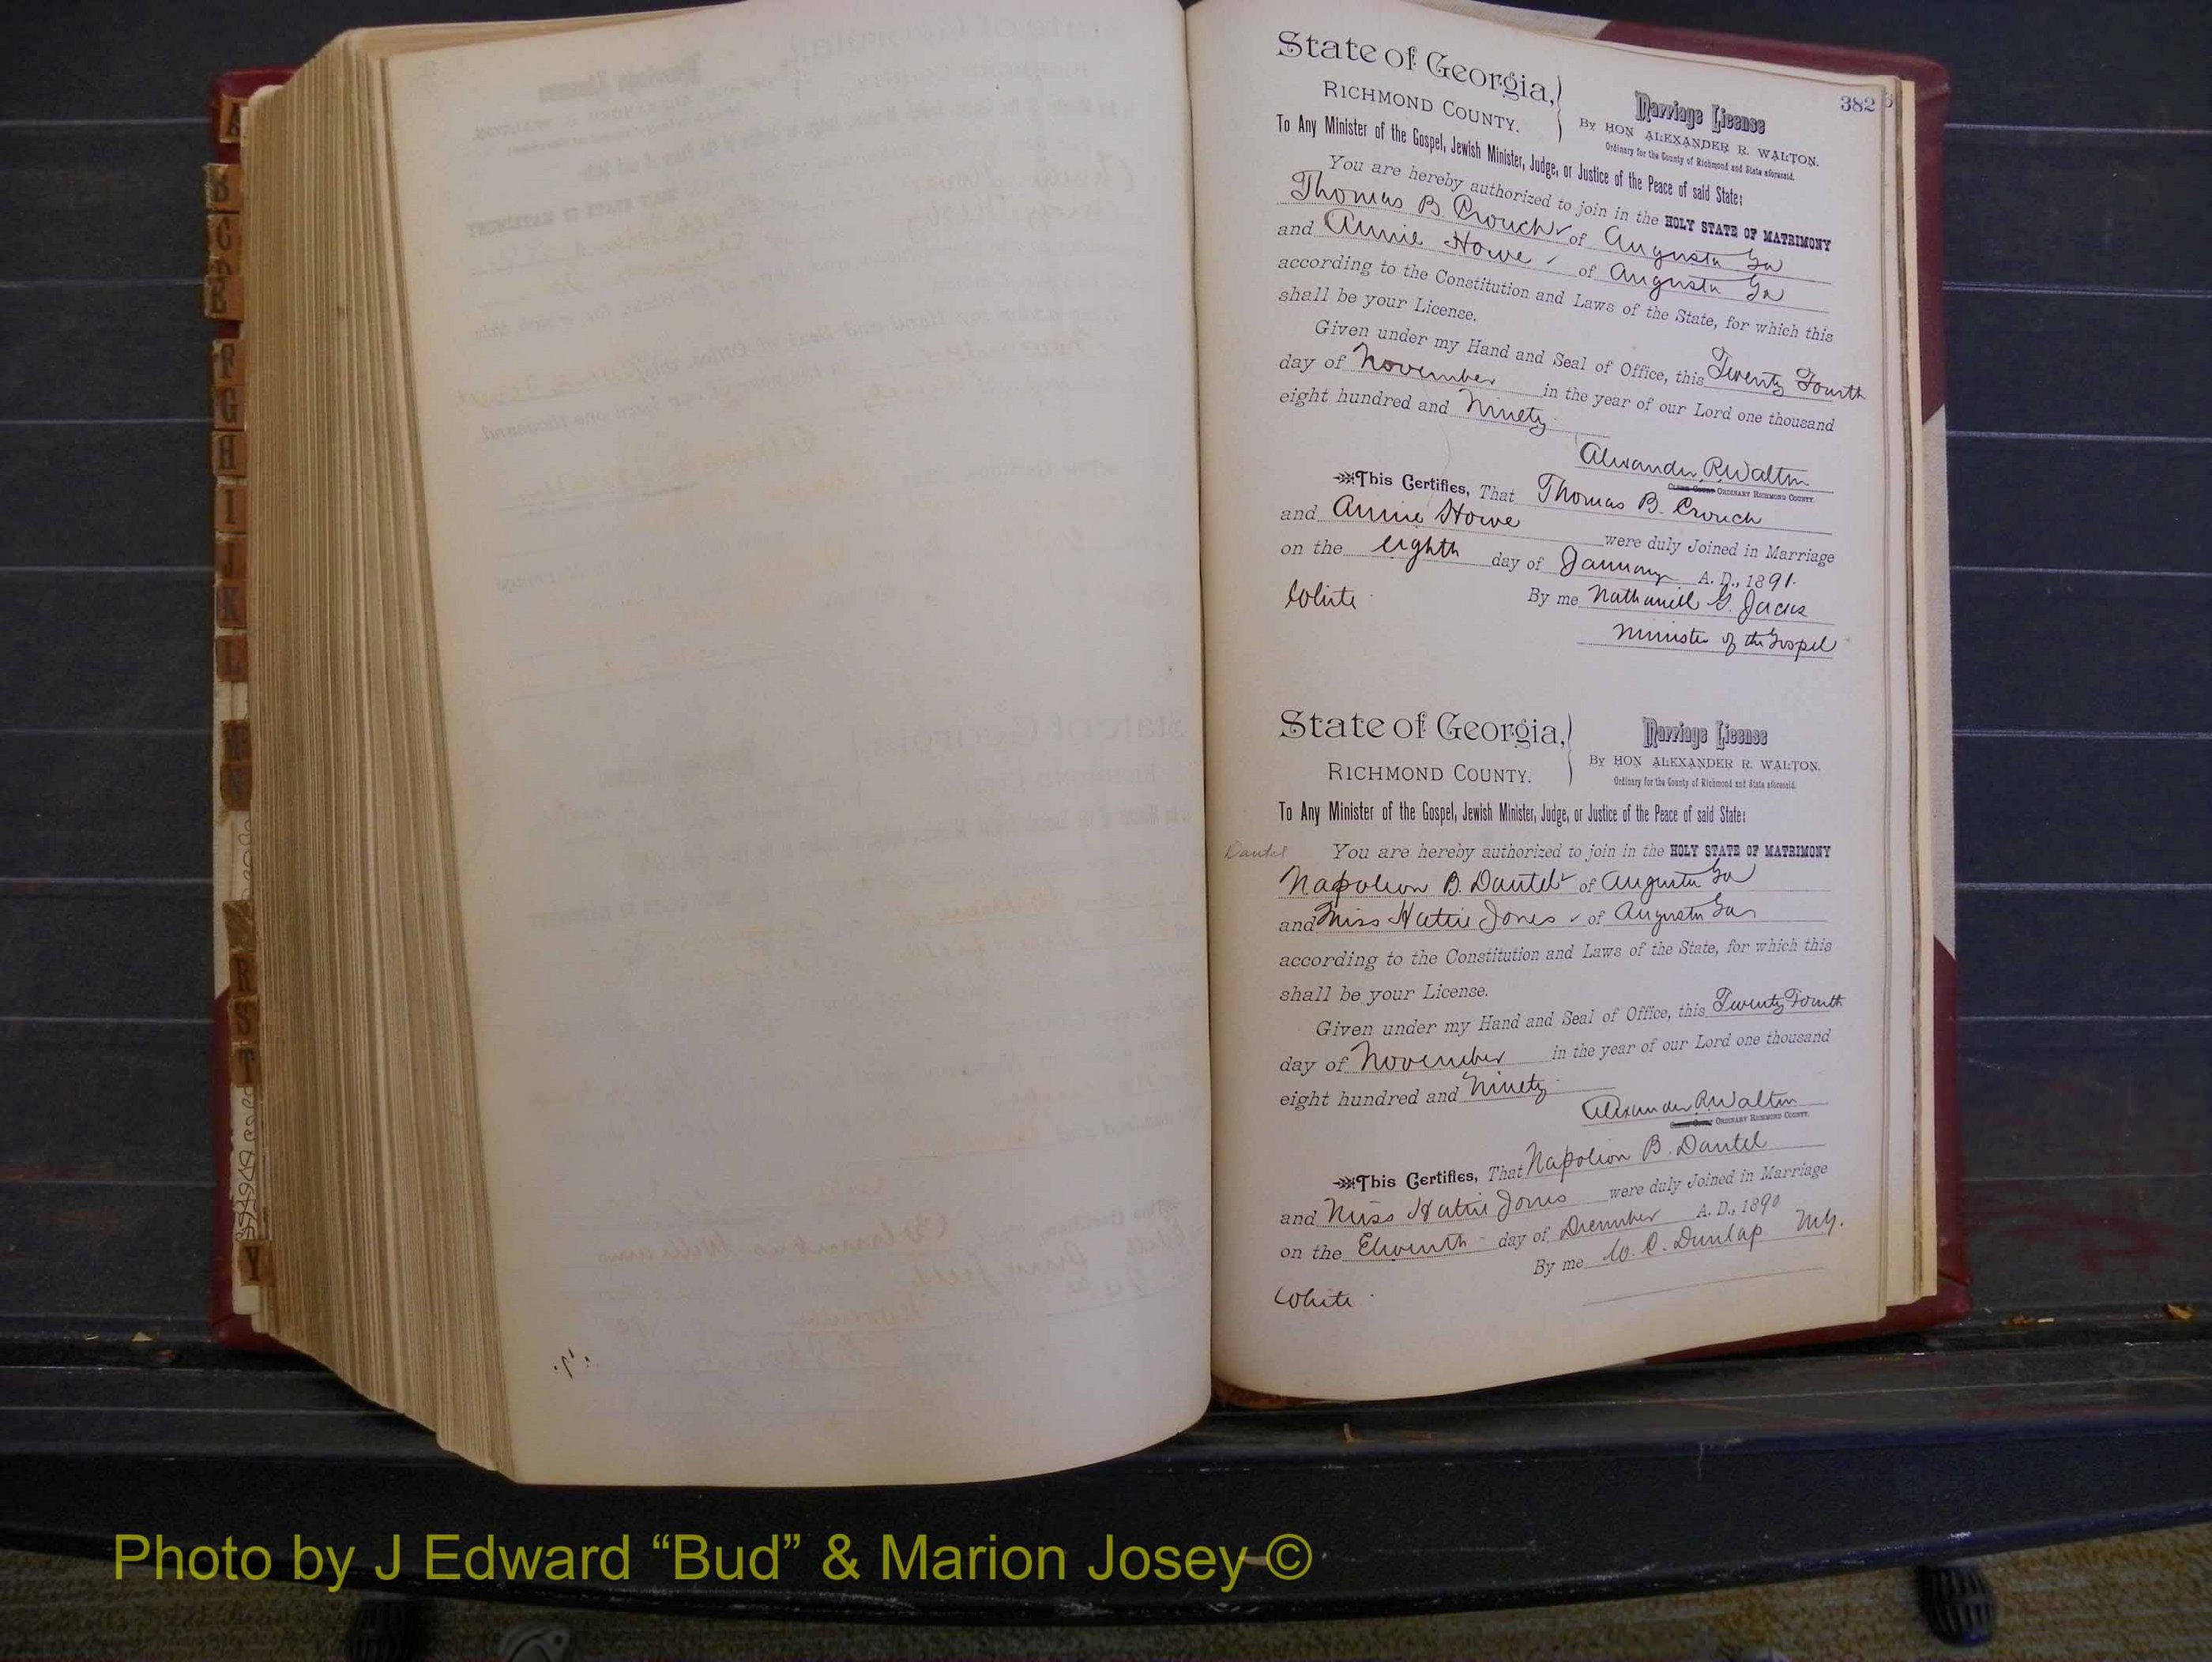 A
B
C
D
E
F
G
H
I
J
K
L
M
N
R
S
T
Y
382
State of Georgia,
RICHMOND COUNTY.
Marriage License
By HON ALEXANDER R. WALTON.
Ordinary for the County of Richmond and State aforesaid.
To Any Minister of the Gospel, Jewish Minister, Judge, or Justice of the Peace of said State:
You are hereby authorized to join in the HOLY STATE OF MATRIMONY
Thomas B. Crouch of Augusta Ga
and Annie Howe of Augusta Ga
according to the Constitution and Laws of the State, for which this
shall be your License.
Given under my Hand and Seal of Office, this Twenty Fourth
day of November in the year of our Lord one thousand
eight hundred and Ninety
Alexander R Walton
ORDINARY RICHMOND COUNTY.
This Certifies, That Thomas B. Crouch
and Annie Howe were duly Joined in Marriage
on the eighth day of January A. D., 1891.
White By me Nathaniell G. Jacks
Minister of the Gospel
State of Georgia,
RICHMOND COUNTY.
Marriage License
By HON ALEXANDER R. WALTON.
Ordinary for the County of Richmond and State aforesaid.
To Any Minister of the Gospel, Jewish Minister, Judge, or Justice of the Peace of said State:
Dantel You are hereby authorized to join in the HOLY STATE OF MATRIMONY
Napoleon B. Dantel of Augusta Ga
and Miss Hattie Jones of Augusta Ga
according to the Constitution and Laws of the State, for which this
shall be your License.
Given under my Hand and Seal of Office, this Twenty Fourth
day of November in the year of our Lord one thousand
eight hundred and Ninety
Alexander R Walton
ORDINARY RICHMOND COUNTY.
This Certifies, That Napoleon B. Dantel
and Miss Hattie Jones were duly Joined in Marriage
on the Eleventh day of December A. D., 1890
By me W. C. Dunlap M.G.
White
Photo by J Edward “Bud” & Marion Josey ©